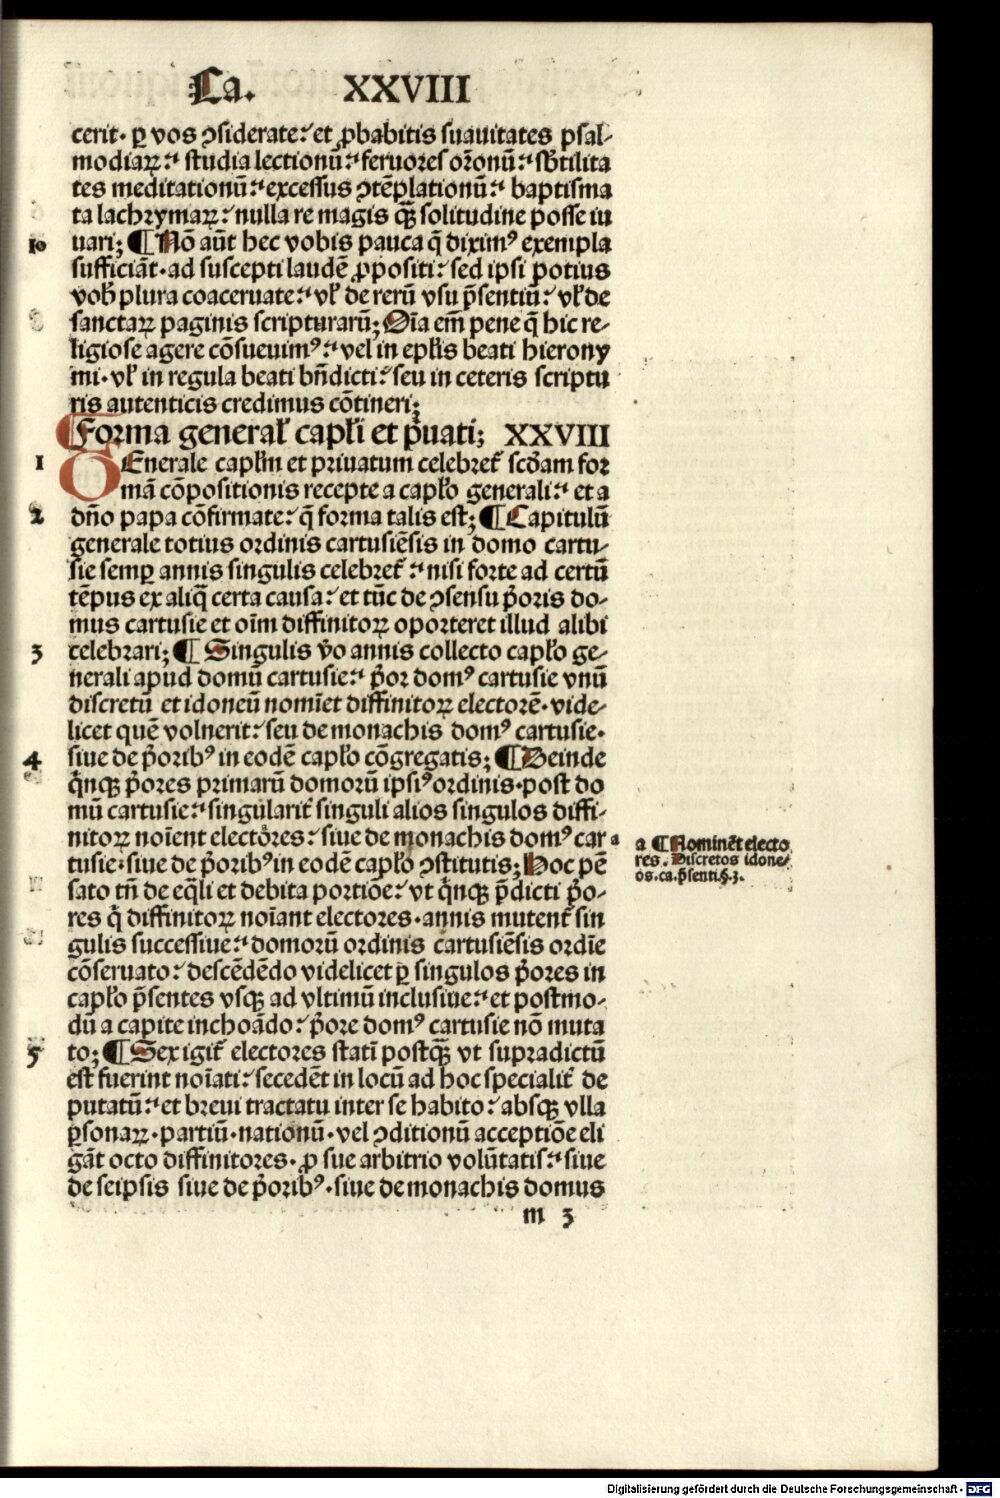 Ca. XXVIII
cerit· ꝑ vos ꝯsiderate:́ et ꝓbabitis suauitates psal⸗
modiaꝝ:́ studia lectionū:́ feruores oꝛōnū:́ sb̄tilita
tes meditationū:́ excessus ꝯtēplationū:́ baptisma
ta lachꝛymaꝝ:́ nulla re magis qꝫ̄ solitudine posse iu
10 uari; ¶ Nō aūt hec vobis pauca q̄ diximꝰ exempla
sufficiāt· ad suscepti laudē ꝓpositi:́ sed ipsi potius
vob̄ plura coaceruate:́ vl̛ de rerū vsu p̄sentiū:́ vl̛ de
sanctaꝝ paginis scripturarū; Oīa em̄ pene q̄ hic re⸗
ligiose agere cōsueuimꝰ:́ vel in epl̄is beati hierony
mi· vl̛ in regula beati bn̄dicti:́ seu in ceteris scriptu
ris autenticis credimus cōtineri;
Foꝛma general̛ capl̄i et p̄uati; XXVIII
1 GEnerale capl̄m et pꝛiuatum celebꝛet̄ scd̄am foꝛ
mā cōpositionis recepte a capl̄o generali:́ et a
2 dn̄o papa cōfirmate:́ q̄ foꝛma talis est; ¶ Capitulū
generale totius oꝛdinis cartusiēsis in domo cartu⸗
sie semꝑ annis singulis celebꝛet̄:́ nisi foꝛte ad certū
tēpus ex aliq̄ certa causa:́ et tūc de ꝯsensu p̄oꝛis do⸗
mus cartusie et oīm diffinitoꝝ opoꝛteret illud alibi
3 celebꝛari; ¶ Singulis v̄o annis collecto capl̄o ge⸗
nerali apud domū cartusie:́ p̄oꝛ domꝰ cartusie vnū
discretū et idoneū nomīet diffinitoꝝ electoꝛē· vide⸗
licet quē volnerit:́ seu de monachis domꝰ cartusie·
4 siue de p̄oꝛibꝰ in eodē capl̄o cōgregatis; ¶ Deinde
q̄nqꝫ p̄oꝛes pꝛimarū domoꝛū ipsiꝰ oꝛdinis· post do
mū cartusie:́ singularit̄ singuli alios singulos diffi⸗
nitoꝝ noīent electōꝛes:́ siue de monachis domꝰ car a
tusie· siue de p̄oꝛibꝰ in eodē capl̄o ꝯstitutis; Hoc pē
sato tn̄ de eq̄li et debita poꝛtiōe:́ vt q̄nqꝫ p̄dicti p̄o⸗
res q̄ diffinitoꝝ noīant electoꝛes· annis mutent̄ sin
gulis successiue:́ domoꝛū oꝛdinis cartusiēsis oꝛdīe
cōseruato:́ descēdēdo videlicet ꝑ singulos p̄oꝛes in
capl̄o p̄sentes vsqꝫ ad vltimū inclusiue:́ et postmo⸗
dū a capite inchoādo:́ p̄oꝛe domꝰ cartusie nō muta
5 to; ¶ Sex igit̄ electoꝛes statī postqꝫ̄ vt supꝛadictū
est fuerint noīati:́ secedēt in locū ad hoc specialit̄ de
putatū:́ et bꝛeui tractatu inter se habito:́ absqꝫ vlla
ꝑsonaꝝ· partiū· nationū· vel ꝯditionū acceptiōe eli
gāt octo diffinitoꝛes· ꝓ sue arbitrio volūtatis:́ siue
de seipsis siue de p̄oꝛibꝰ· siue de monachis domus
m 3
a ¶ Nominēt electo
res. Discretos idone⸗
os. ca. p̄senti. §. 3.
Digitalisierung gefördert durch die Deutsche Forschungsgemeinschaft - DFG